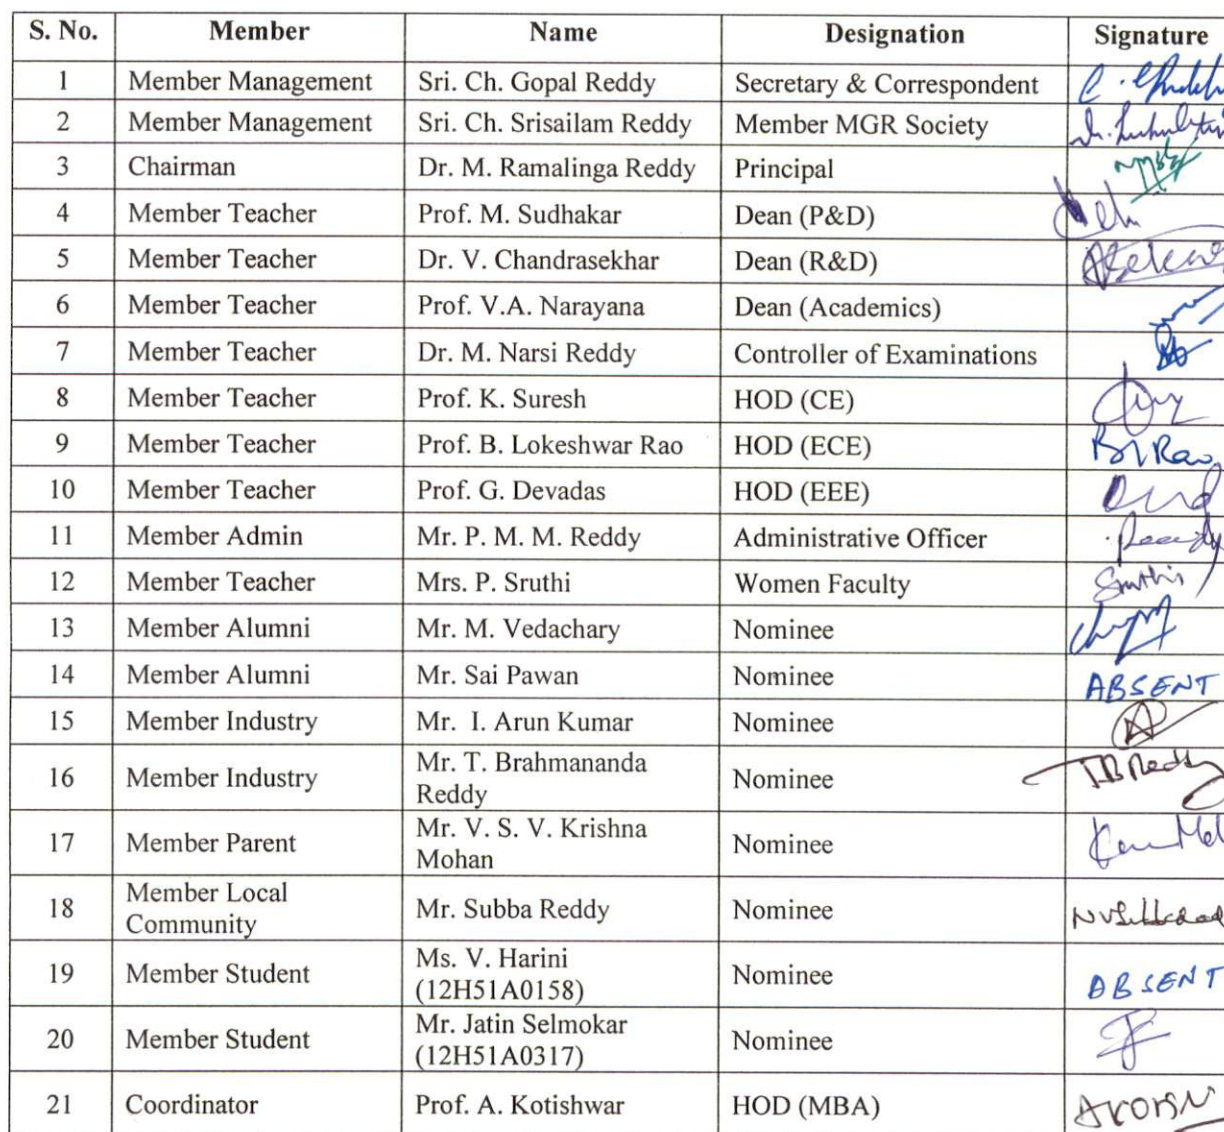 S. No. Member Name Designation Signature
1 Member Management Sri. Ch. Gopal Reddy Secretary & Correspondent
2 Member Management Sri. Ch. Srisailam Reddy Member MGR Society
3 Chairman Dr. M. Ramalinga Reddy Principal
4 Member Teacher Prof. M. Sudhakar Dean (P&D)
5 Member Teacher Dr. V. Chandrasekhar Dean (R&D)
6 Member Teacher Prof. V.A. Narayana Dean (Academics)
7 Member Teacher Dr. M. Narsi Reddy Controller of Examinations
8 Member Teacher Prof. K. Suresh HOD (CE)
9 Member Teacher Prof. B. Lokeshwar Rao HOD (ECE) Rao
10 Member Teacher Prof. G. Devadas HOD (EEE)
11 Member Admin Mr. P. M. M. Reddy Administrative Officer
12 Member Teacher Mrs. P. Sruthi Women Faculty
13 Member Alumni Mr. M. Vedachary Nominee
14 Member Alumni Mr. Sai Pawan Nominee ABSENT
15 Member Industry Mr. I. Arun Kumar Nominee
16 Member Industry Mr. T. Brahmananda
Reddy Nominee TB Reddy
17 Member Parent Mr. V. S. V. Krishna
Mohan Nominee
18 Member Local
Community Mr. Subba Reddy Nominee
19 Member Student Ms. V. Harini
(12H51A0158) Nominee ABSENT
20 Member Student Mr. Jatin Selmokar
(12H51A0317) Nominee
21 Coordinator Prof. A. Kotishwar HOD (MBA)